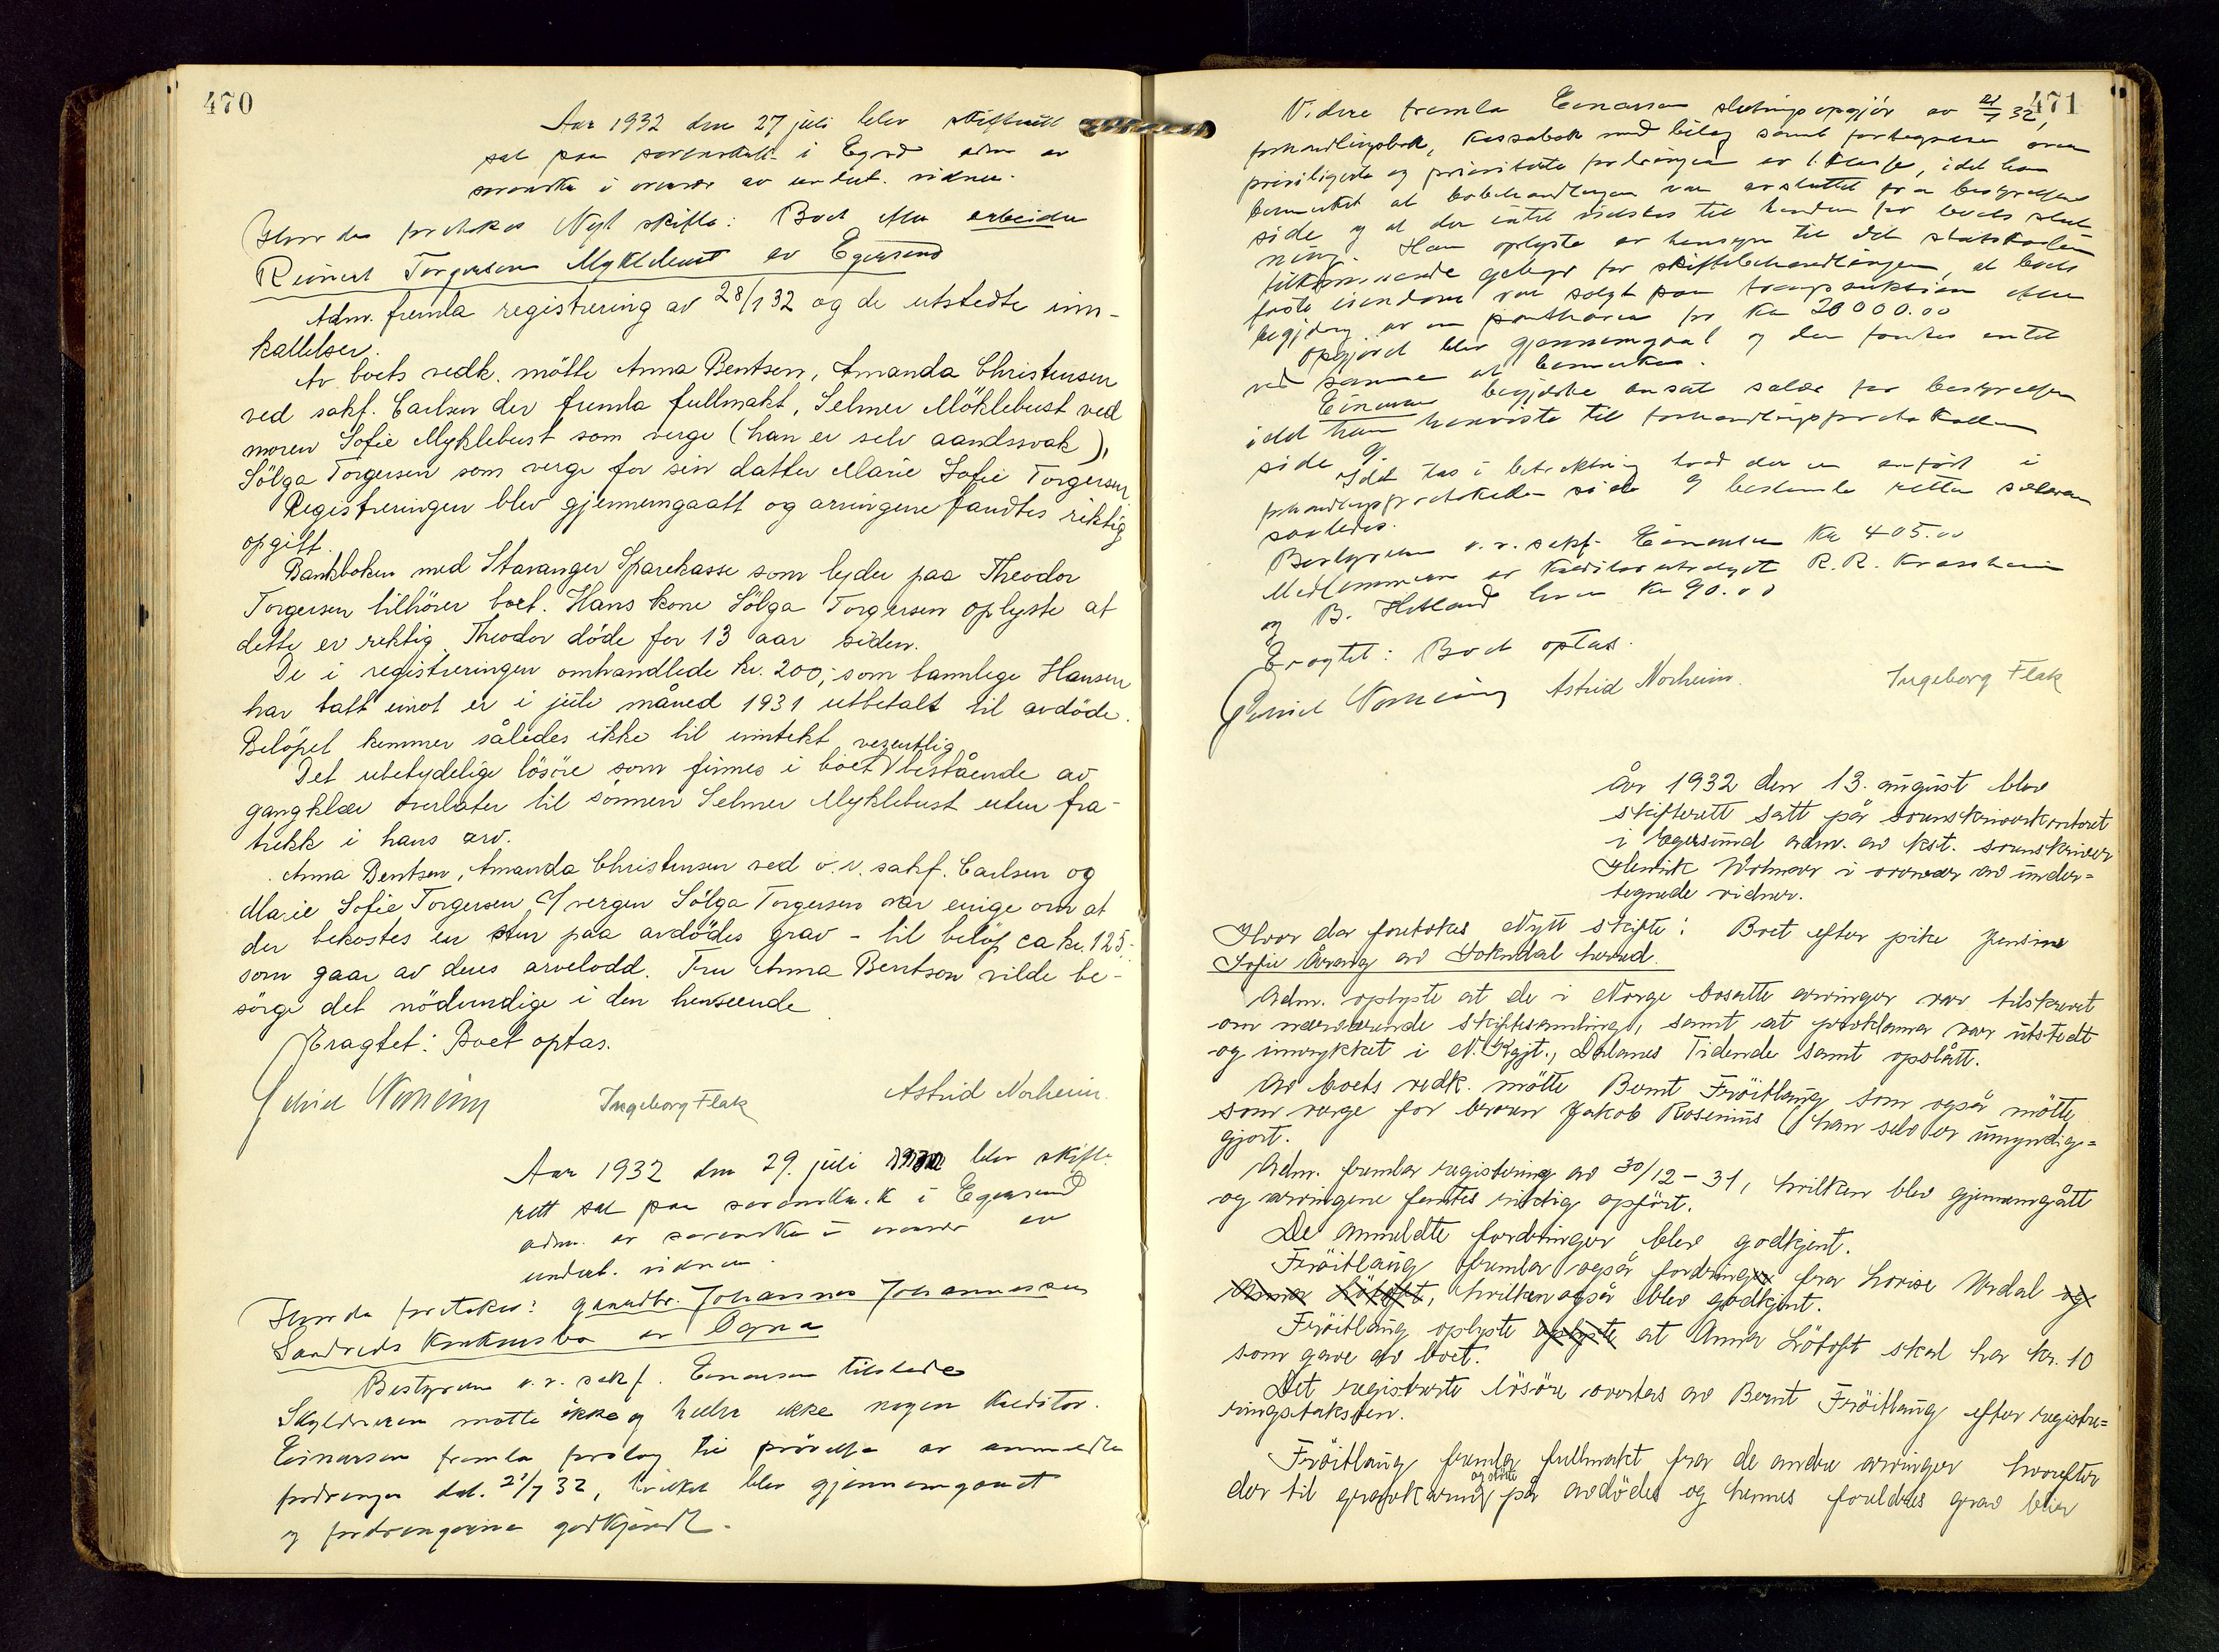 470
Aar 1932 den 27 juli blev skifterett
sat paa sorenskr.k. i Egersd adm av
sorenskr. i overvær av undert. vidner.
Hvorda foretokes Nyt skifte: Boet efter arbeider
Reinert Torgersen Myklebust av Egersund
Adm. fremla registrering av 28/1 32 og de utstedte inn-
kallelser.
Av boets vedk. mötte Anna Bentsen, Amanda Christensen
ved sakf. Carlsen der fremla fullmakt, Selmer Möklebust ved
moren Sofie Myklebust som verge (han er selv aandssvak),
Sölga Torgersen som verge for sin datter Marie Sofie Torgersen
Registreringen blev gjennemgaatt og arvingene fandtes riktig
opgitt.
Bankboken med Stavanger Sparekasse som lyder paa Theodor
Torgersen tilhörer boet. Hans kone Sölga Torgersen oplyste at
dette er riktig. Theodor döde for 13 aar siden.
De i registreringen omhandlede kr. 200,- som tannlege Hansen
har tatt imot er i juli måned 1931 utbetalt til avdöde.
Belöpet kommer således ikke til inntekt
Det ubetydelige lösöre som finnes i boet vesentlig bestående av
gangklær overlates til sönnen Selmer Myklebust uten fra-
trekk i hans arv.
Anna Bentsen, Amanda Christensen ved o.r. sakf. Carlsen og
Marie Sofie Torgersen v/ vergen Sölga Torgersen var enige om at
der bekostes en sten paa avdödes grav - til belöp ca kr. 125.-
som gaar av deres arvelodd. Fru Anna Bentson vilde be-
sörge det nödvendige i den henseende
Eragtet: Boet optas.
Ingeborg Flak Astrid Norheim.
Aar 1932 den 29. juli blev skifte
rett sat paa sorenskr.k i Egersund
adm. av sorenskr. i overvær av
undert. vidner.
Hvorda foretokes: gaardbr. Johannes Johannessen
Sandveds Konkursbo av Ogna
Bestyreren o.r. sakf. Einarsen tilstede
Skyldneren mötte ikke og heller ikke nogen kreditor.
Einarsen fremla forslag til prövelse av anmeldte
fordringer dat. 21/7 32, hvilket blev gjennemgaaet
og fordringerne godkjendt.
471
Videre fremla Einarsen slutningsopgjör av 21/7 32,
forhandlingsbok, kassabok med bilag samt fortegnelse over
priviligerte og prioriterte fordringer av 1. klasse, idet han
bemerket at bobehandlingen var avsluttet fra bestyrelsens
side og at der intet vidstes til hinder for boets slut
ning. Han oplyste av hensyn til det statskassen
tilkommende gebyr for skiftebehandlingen, at boets
faste eiendom var solgt paa tvangsauktion efter
begjæring av en panthaver for kr 20000.00
Opgjöret blev gjennemgaat og der fandtes intet
ved samme at bemerke.
Einarsen begjærte ansat salær for bestyrelsen
idet han henviste til forhandlingsprotokollen
side 9.
Idet tas i betraktning hvad der er anfört i
forhandlingsprotokollen side 9 bestemte retten salæret
saaledes:
Bestyreren o.r. sakf. Einarsen kr 405.00
Medlemmene av kreditorutvalget R. R.
og B. Hetland hver kr 90.00
Eragtet: Boet optas.
Astrid Norheim. Ingeborg Flak
År 1932 den 13. august blev
skifterett satt på sorenskriverkontoret
i Egersund adm. av kst. sorenskriver
Henrik i overvær av under=
tegnede vidner.
Hvor der foretokes Nytt skifte: Boet efter pike Jensine
Sofie av Sokndal herred.
Adm. oplyste at de i Norge bosatte arvinger var tilskrevet
om nærværende skiftesamling, samt at proklama var utstedt
og innrykket i N. Kgjt., Dalanes Tidende samt opslått.
Av boets vedk. mötte Bernt Fröitlang som også mötte
som verge for broren Jakob Rosenius (han selv er umyndig=
gjort.
Adm. fremla registrering av 30/12 - 31, hvilken blev gjennemgått
og arvingene fantes riktig opfört.
De anmeldte fordringer blev godkjent.
Fröitlang fremla også fordring fra Lovise Urdal og
Anna Lötoft, hvilken også blev godkjent.
Fröitlang oplyste oplyste at Anna Lötoft skal ha kr. 10
som gave av boet.
Det registrerte lösöre overtas av Bernt Fröitlang efter registre=
ringstaksten.
Fröitlang fremla fullmakt fra de andre arvinger hvorefter
der til og stötte på avdödes og hennes foreldres grav blir